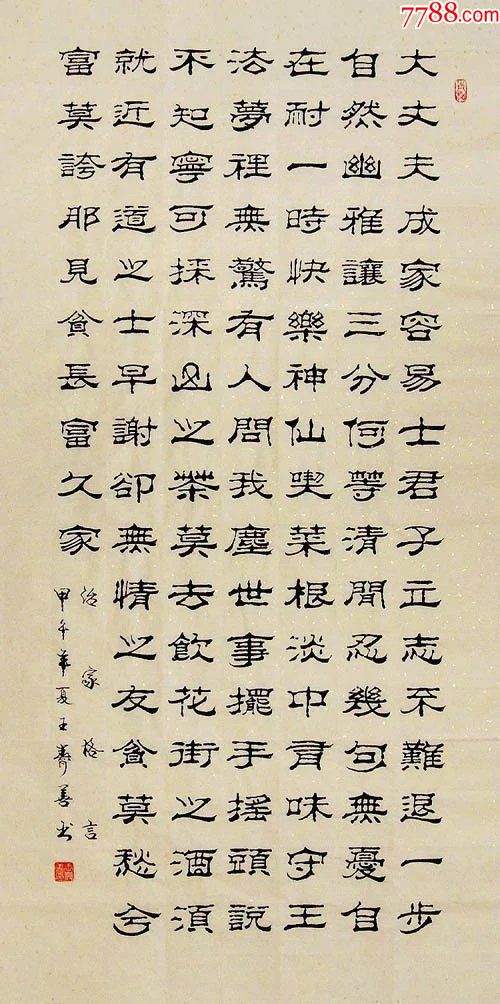 7788.com
大丈夫成家容易士君子立志不難退一步
自然幽雅讓三分何等清閒忍幾句無憂自
在耐一時快樂神仙喫菜根淡中有味守王
法夢裡無驚有人問我塵世事擺手搖頭說
不知寧可採深山之茶莫去飲花街之酒須
就近有道之士早謝卻無情之友貧莫愁兮
富莫誇那見貧長富久家
治家格言
甲午年夏王壽善书